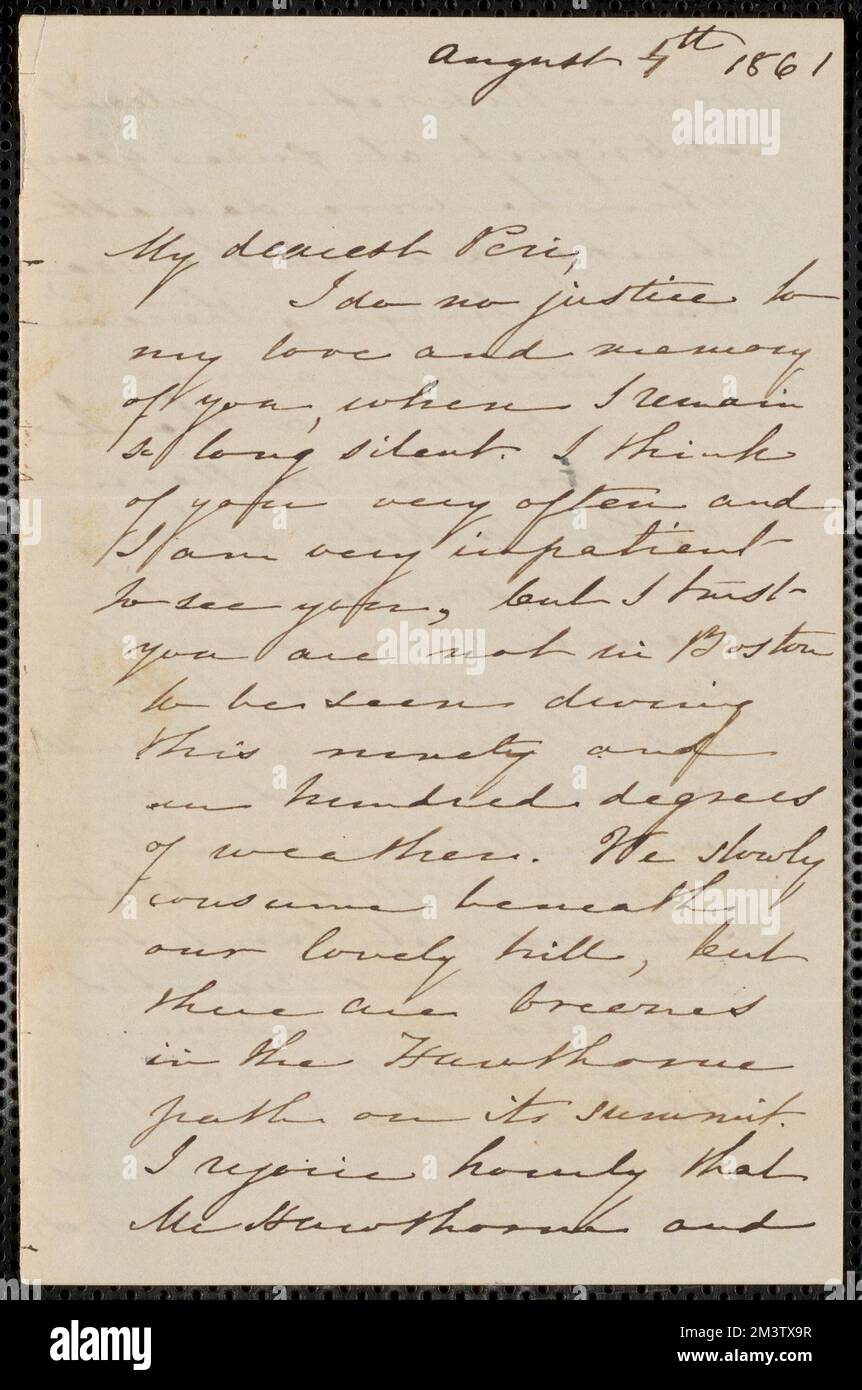 August 4th 1861
My dearest Peri,
I do no justice to
my love and memory
of you, when I remain
so long silent. I think
of you very often and
I am very impatient
to see you, but I trust
you are not in Boston
to be seen during
this ninety and
an hundred degrees
of weather. We slowly
consume beneath
our lovely hill, but
there are breezes
in the Hawthorne
path on its summit.
I rejoice hourly that
Mr Hawthorne and
alamy
Image ID: 2M3TX9R
www.alamy.com